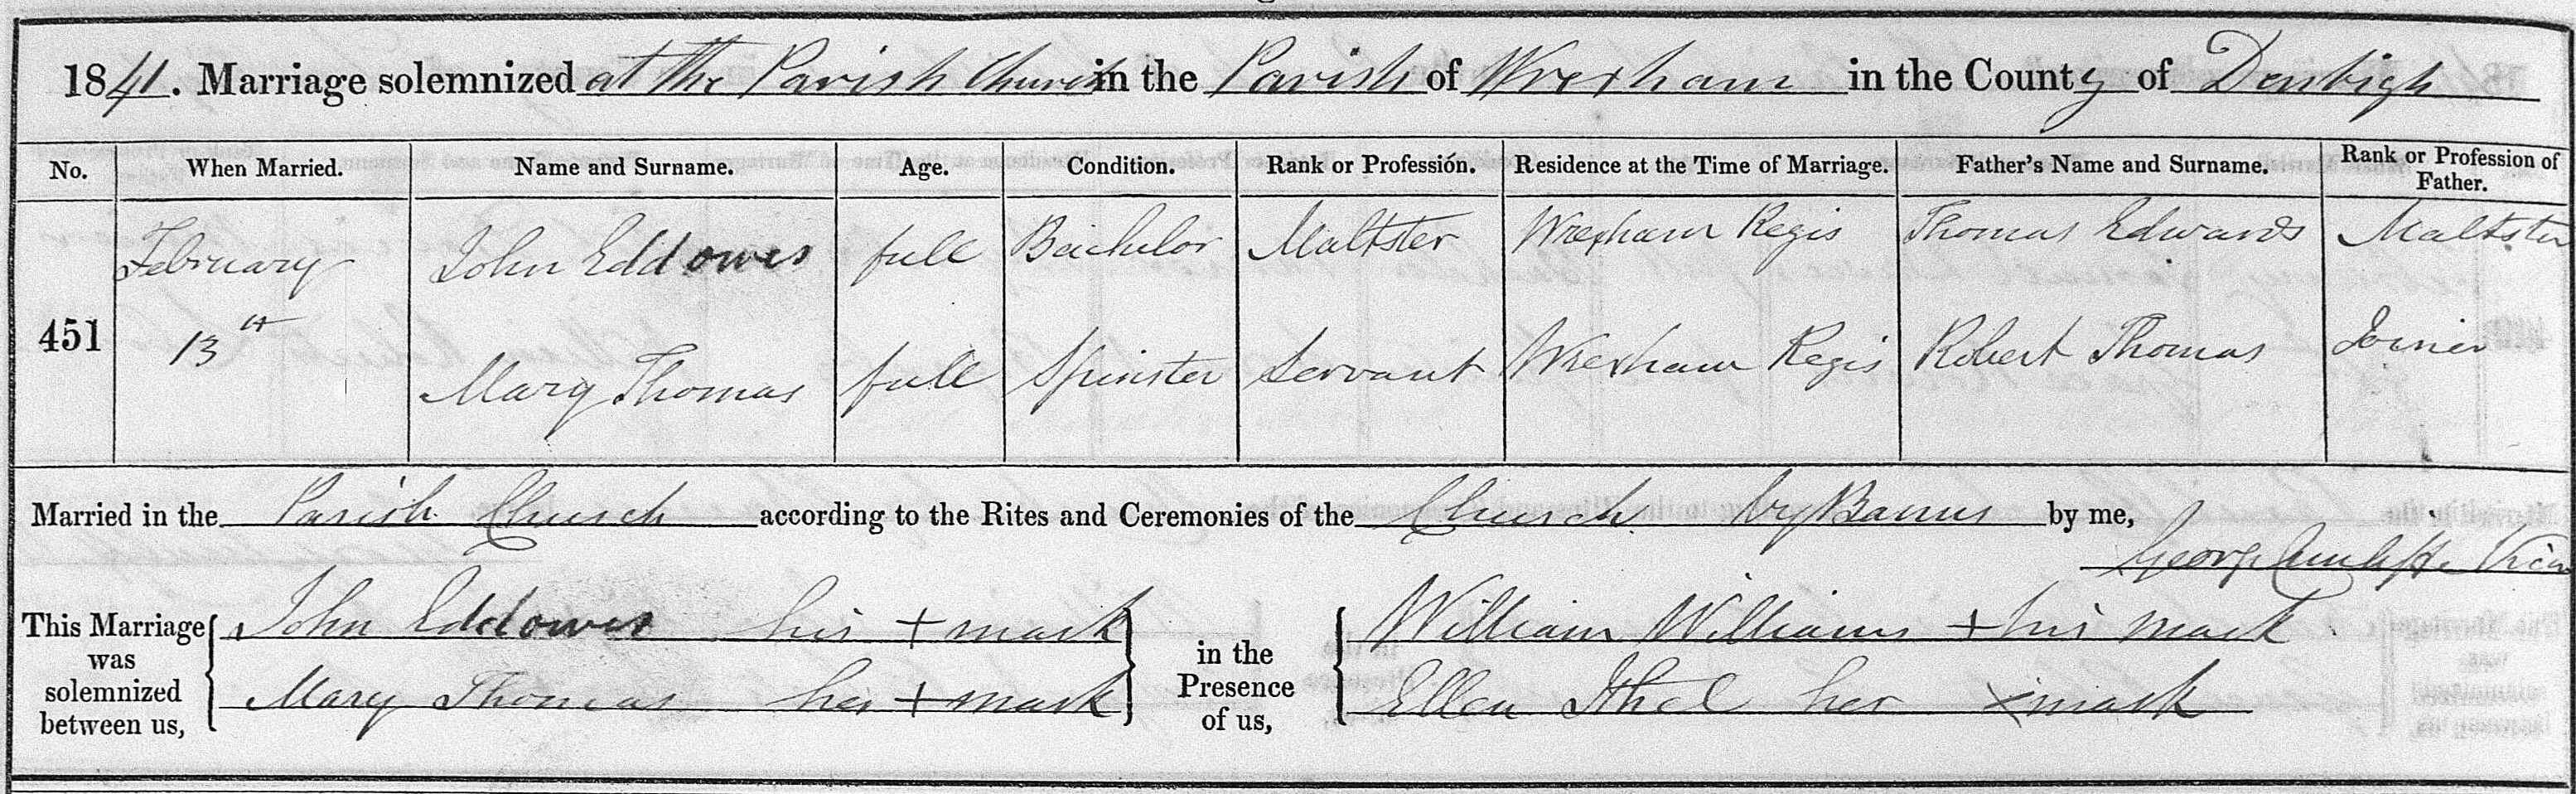 1841. Marriage solemnized at the Parish Church in the Parish of Wrexham in the County of Denbigh
No. When Married. Name and Surname. Age. Condition. Rank or Profession. Residence at the Time of Marriage. Father's Name and Surname. Rank or Profession of Father.
February John Eddowes full Bachelor Maltster Wrexham Regis Thomas Edwards Maltster
451 13th Mary Thomas full Spinster Servant Wrexham Regis Robert Thomas Joiner
Married in the Parish Church according to the Rites and Ceremonies of the Church by Banns by me,
George Cunliffe Vicar
This Marriage was solemnized between us, John Eddowes his + mark
Mary Thomas her + mark
in the Presence of us, William Williams + his mark
Ellen Ithel her x mark